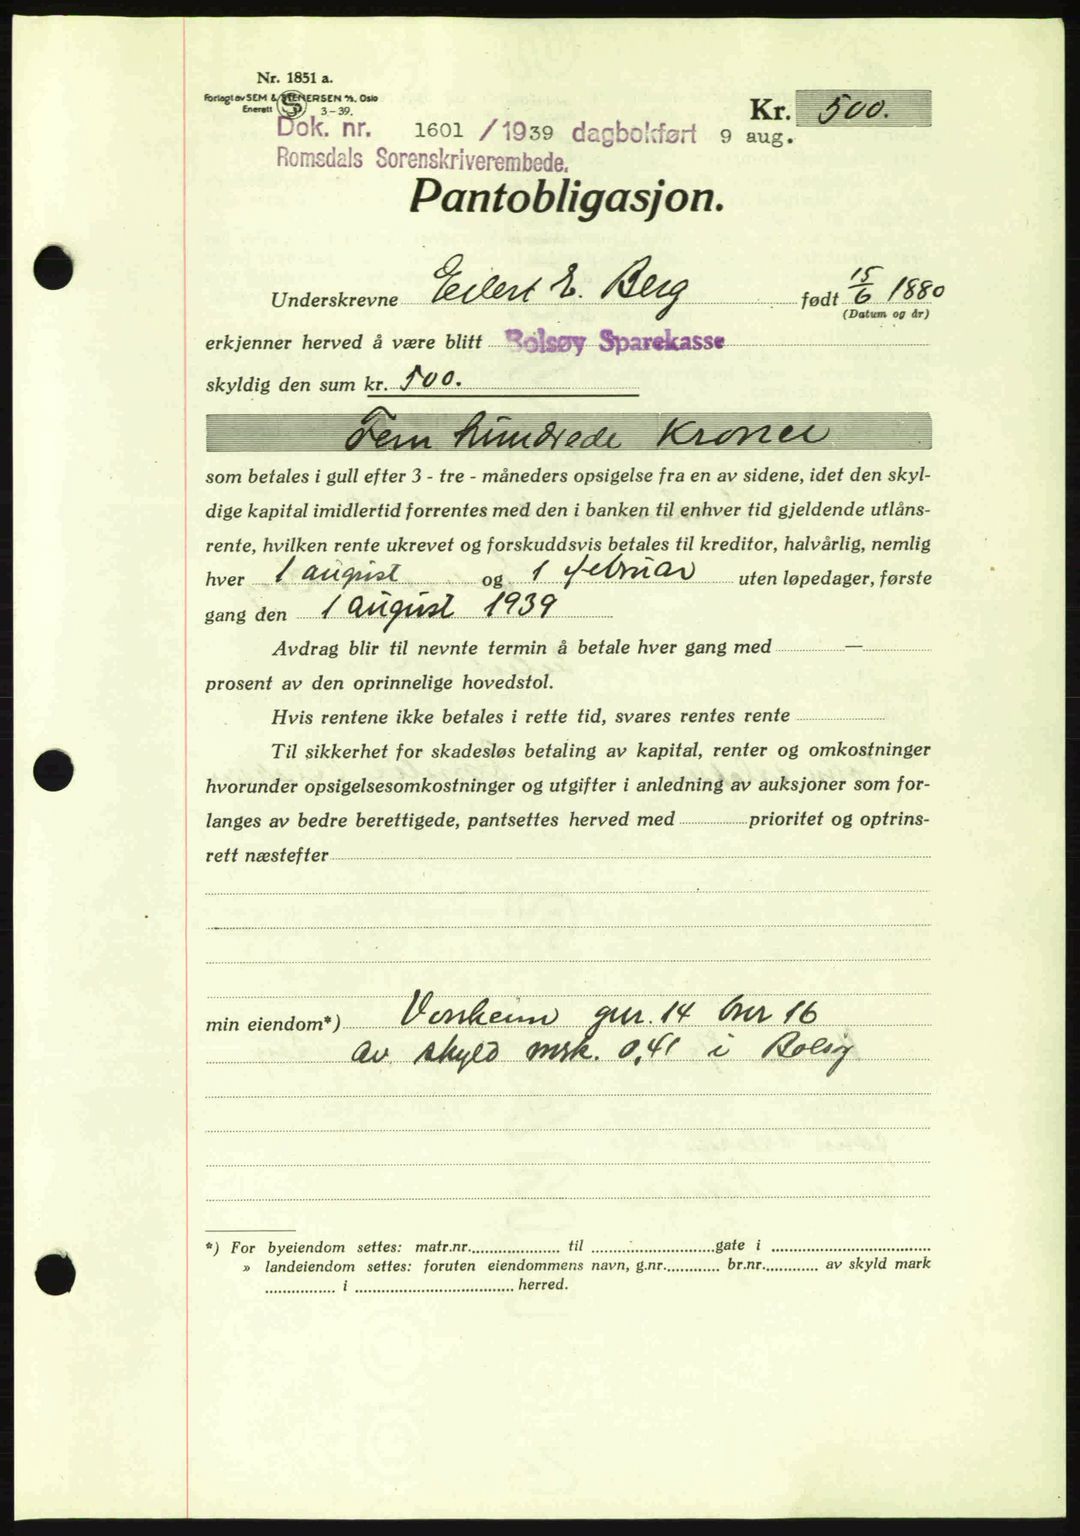 Nr. 1851 a.
Forlagt av SEM & STENERSEN A/S, Oslo
Enerett 3-39.
Kr. 500.
Dok. nr. 1601 /1939 dagbokført 9 aug.
Romsdals Sorenskriverembede.
Pantobligasjon.
Underskrevne Eilert E. Berg født 15/6 1880
(Datum og år)
erkjenner herved å være blitt Bolsøy Sparekasse
skyldig den sum kr. 500.
Fem hundrede Kroner
som betales i gull efter 3 - tre - måneders opsigelse fra en av sidene, idet den skyl-
dige kapital imidlertid forrentes med den i banken til enhver tid gjeldende utlåns-
rente, hvilken rente ukrevet og forskuddsvis betales til kreditor, halvårlig, nemlig
hver 1 august og 1 februar uten løpedager, første
gang den 1 august 1939
Avdrag blir til nevnte termin å betale hver gang med —
prosent av den oprinnelige hovedstol.
Hvis rentene ikke betales i rette tid, svares rentes rente
Til sikkerhet for skadesløs betaling av kapital, renter og omkostninger
hvorunder opsigelsesomkostninger og utgifter i anledning av auksjoner som for-
langes av bedre berettigede, pantsettes herved med prioritet og optrins-
rett næstefter
min eiendom*) gnr. 14 bnr 16
av skyld mrk. 0,41 i Bolsøy
*) For byeiendom settes: matr.nr. til gate i
» landeiendom settes: foruten eiendommens navn, g.nr. br.nr. av skyld mark
i herred.